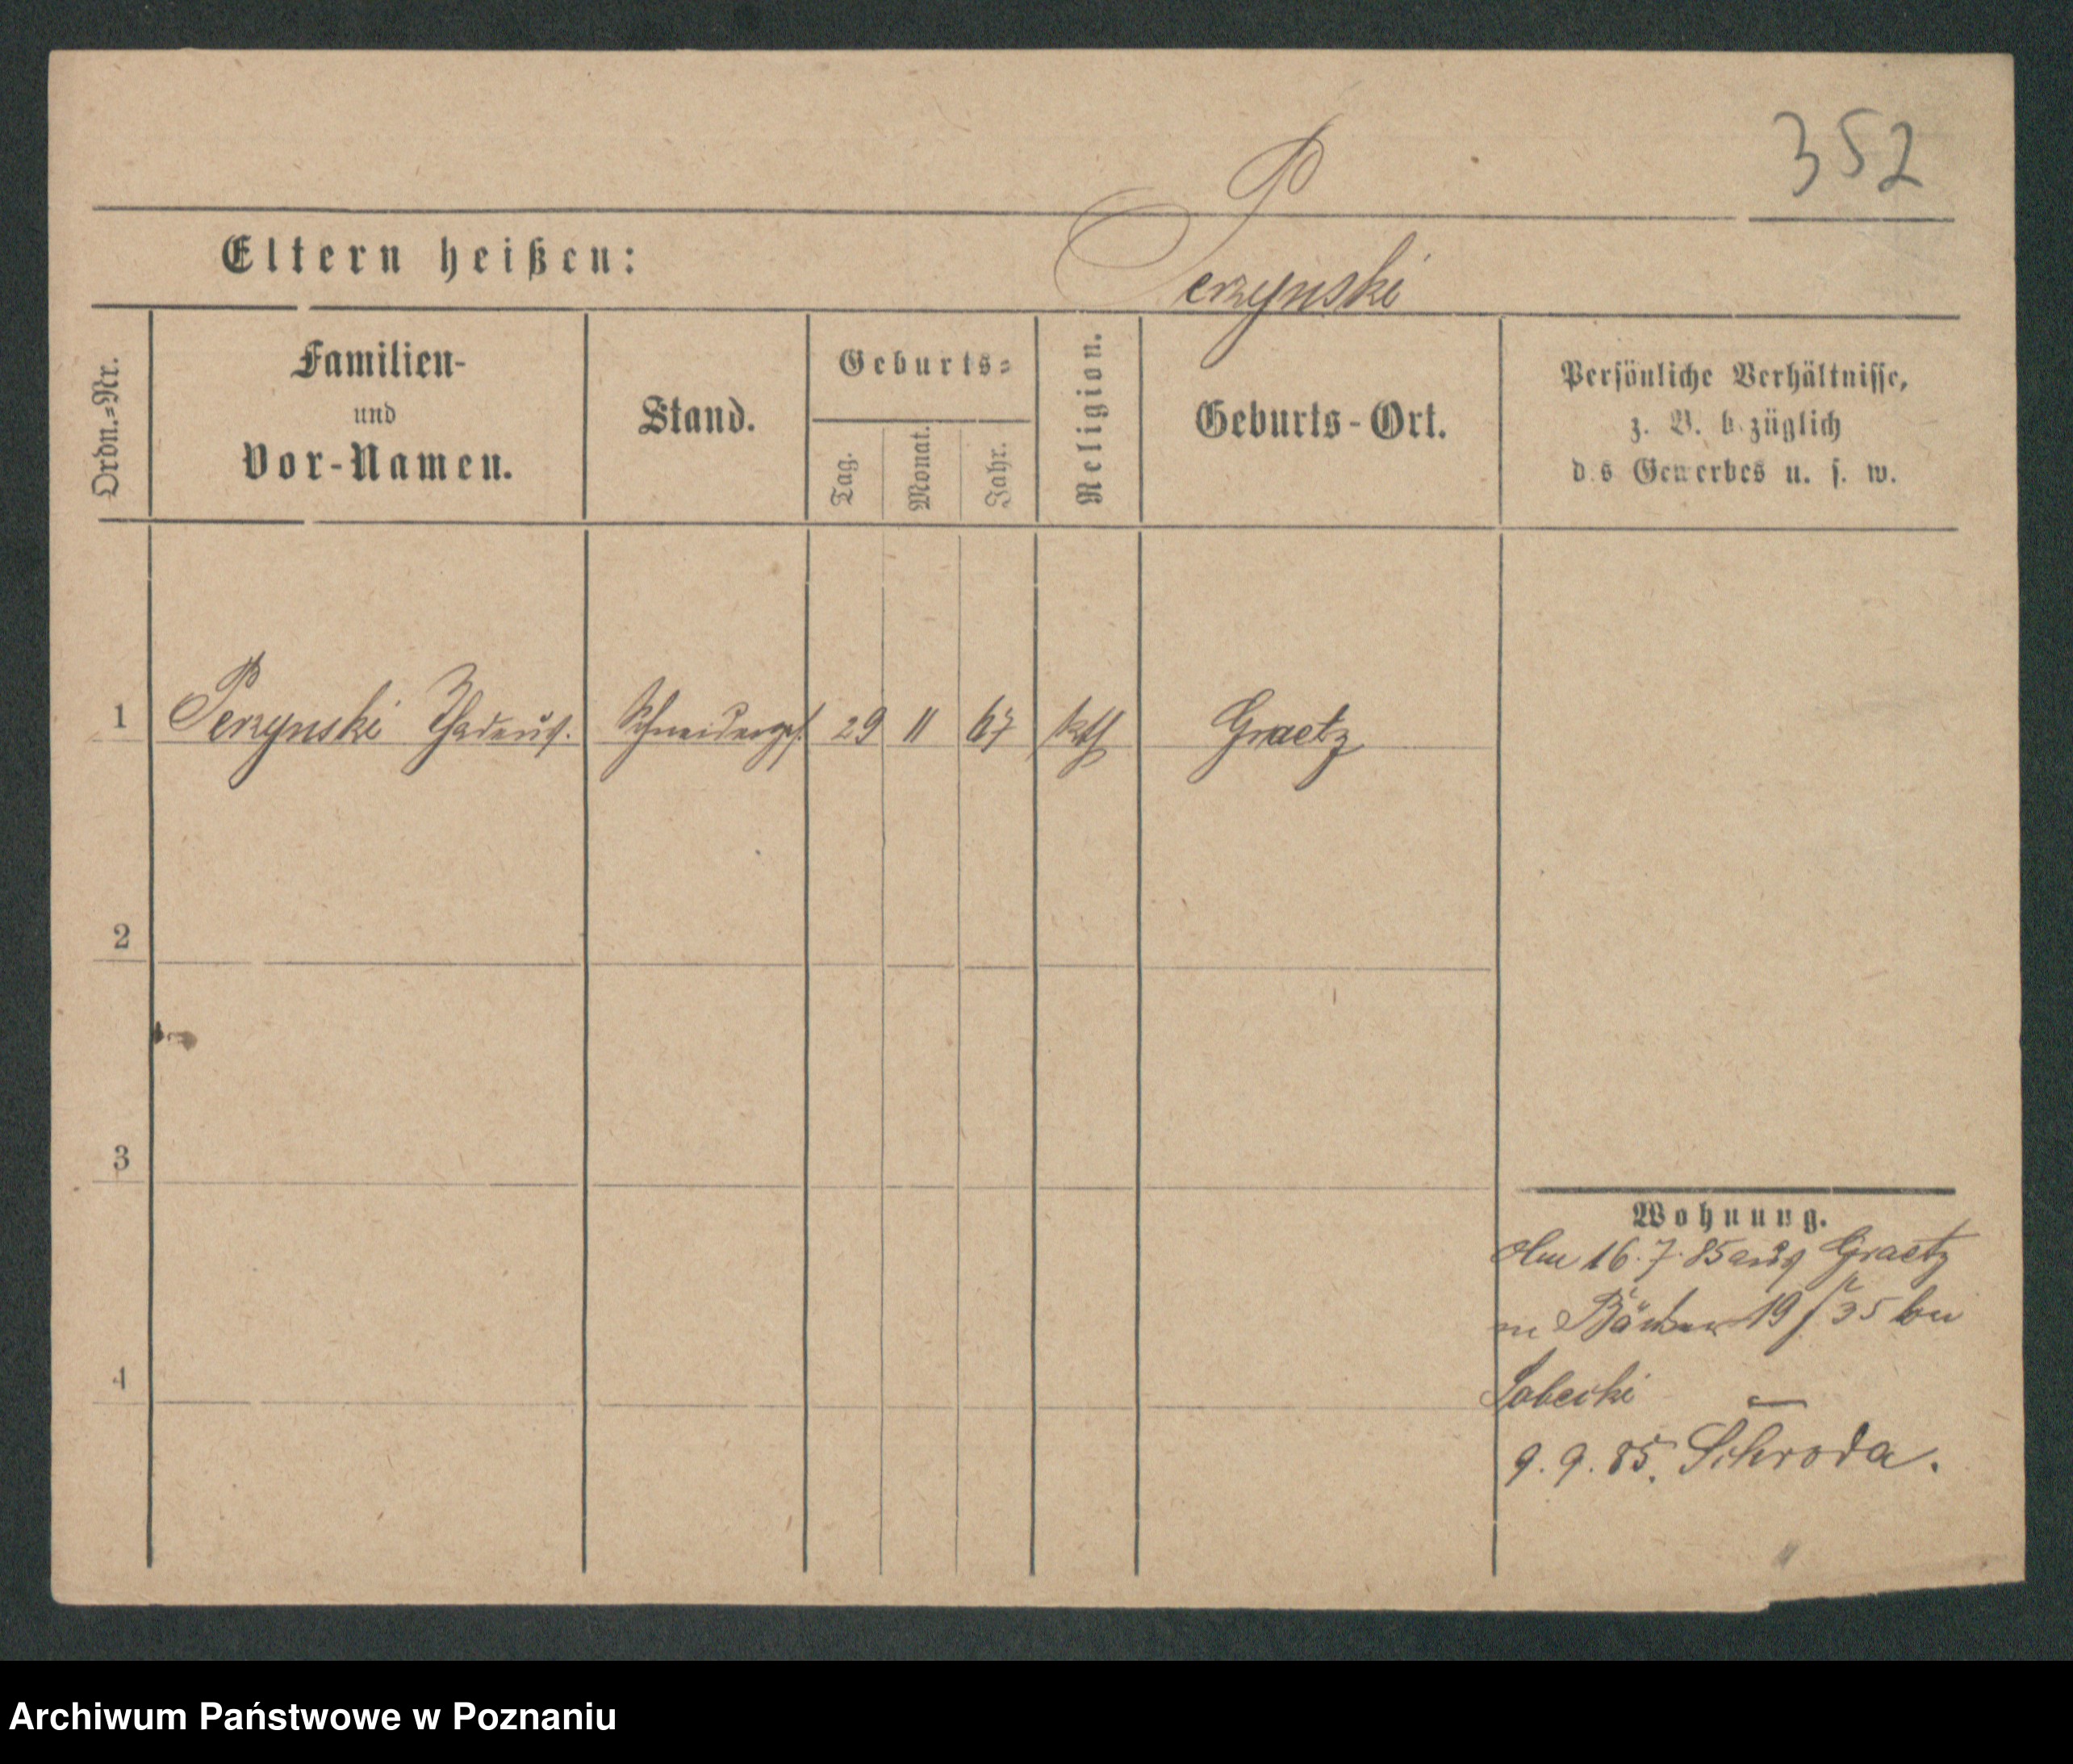 352
Perzynski
Eltern heißen:
Ordn.=Nr.
Familien-
und
Vor-Namen.
Stand.
Geburts=
Tag.
Monat.
Jahr.
Religion.
Geburts-Ort.
Persönliche Verhältnisse,
z. B. bezüglich
d.s Gewerbes u. s. w.
1 Perzynski Thadeus. Schneiderges. 29 11 67 kth Graetz
2
3
4
Wohnung.
Am 16.7.85 aus Graetz
19/35 bei
Sobecki
9.9.85. Schroda.
Archiwum Państwowe w Poznaniu